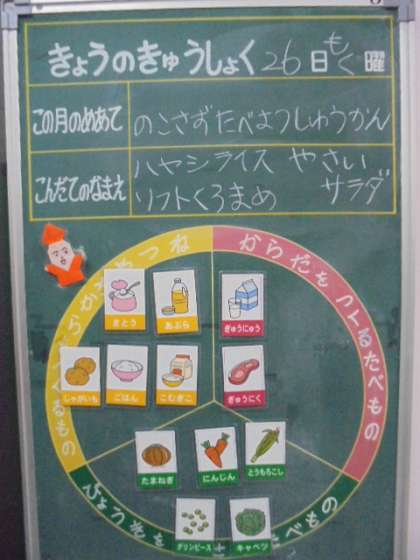 きょうのきゅうしょく 26日 もく曜
この月のめあて
のこさずたべようしゅうかん
こんだてのなまえ
ハヤシライス やさい
ソフトくろまめ サラダ
からだをつくるたべもの
さとう
あぶら
ぎゅうにゅう
じゃがいも
ごはん
こむぎこ
ぎゅうにく
たまねぎ
にんじん
とうもろこし
グリンピース
キャベツ